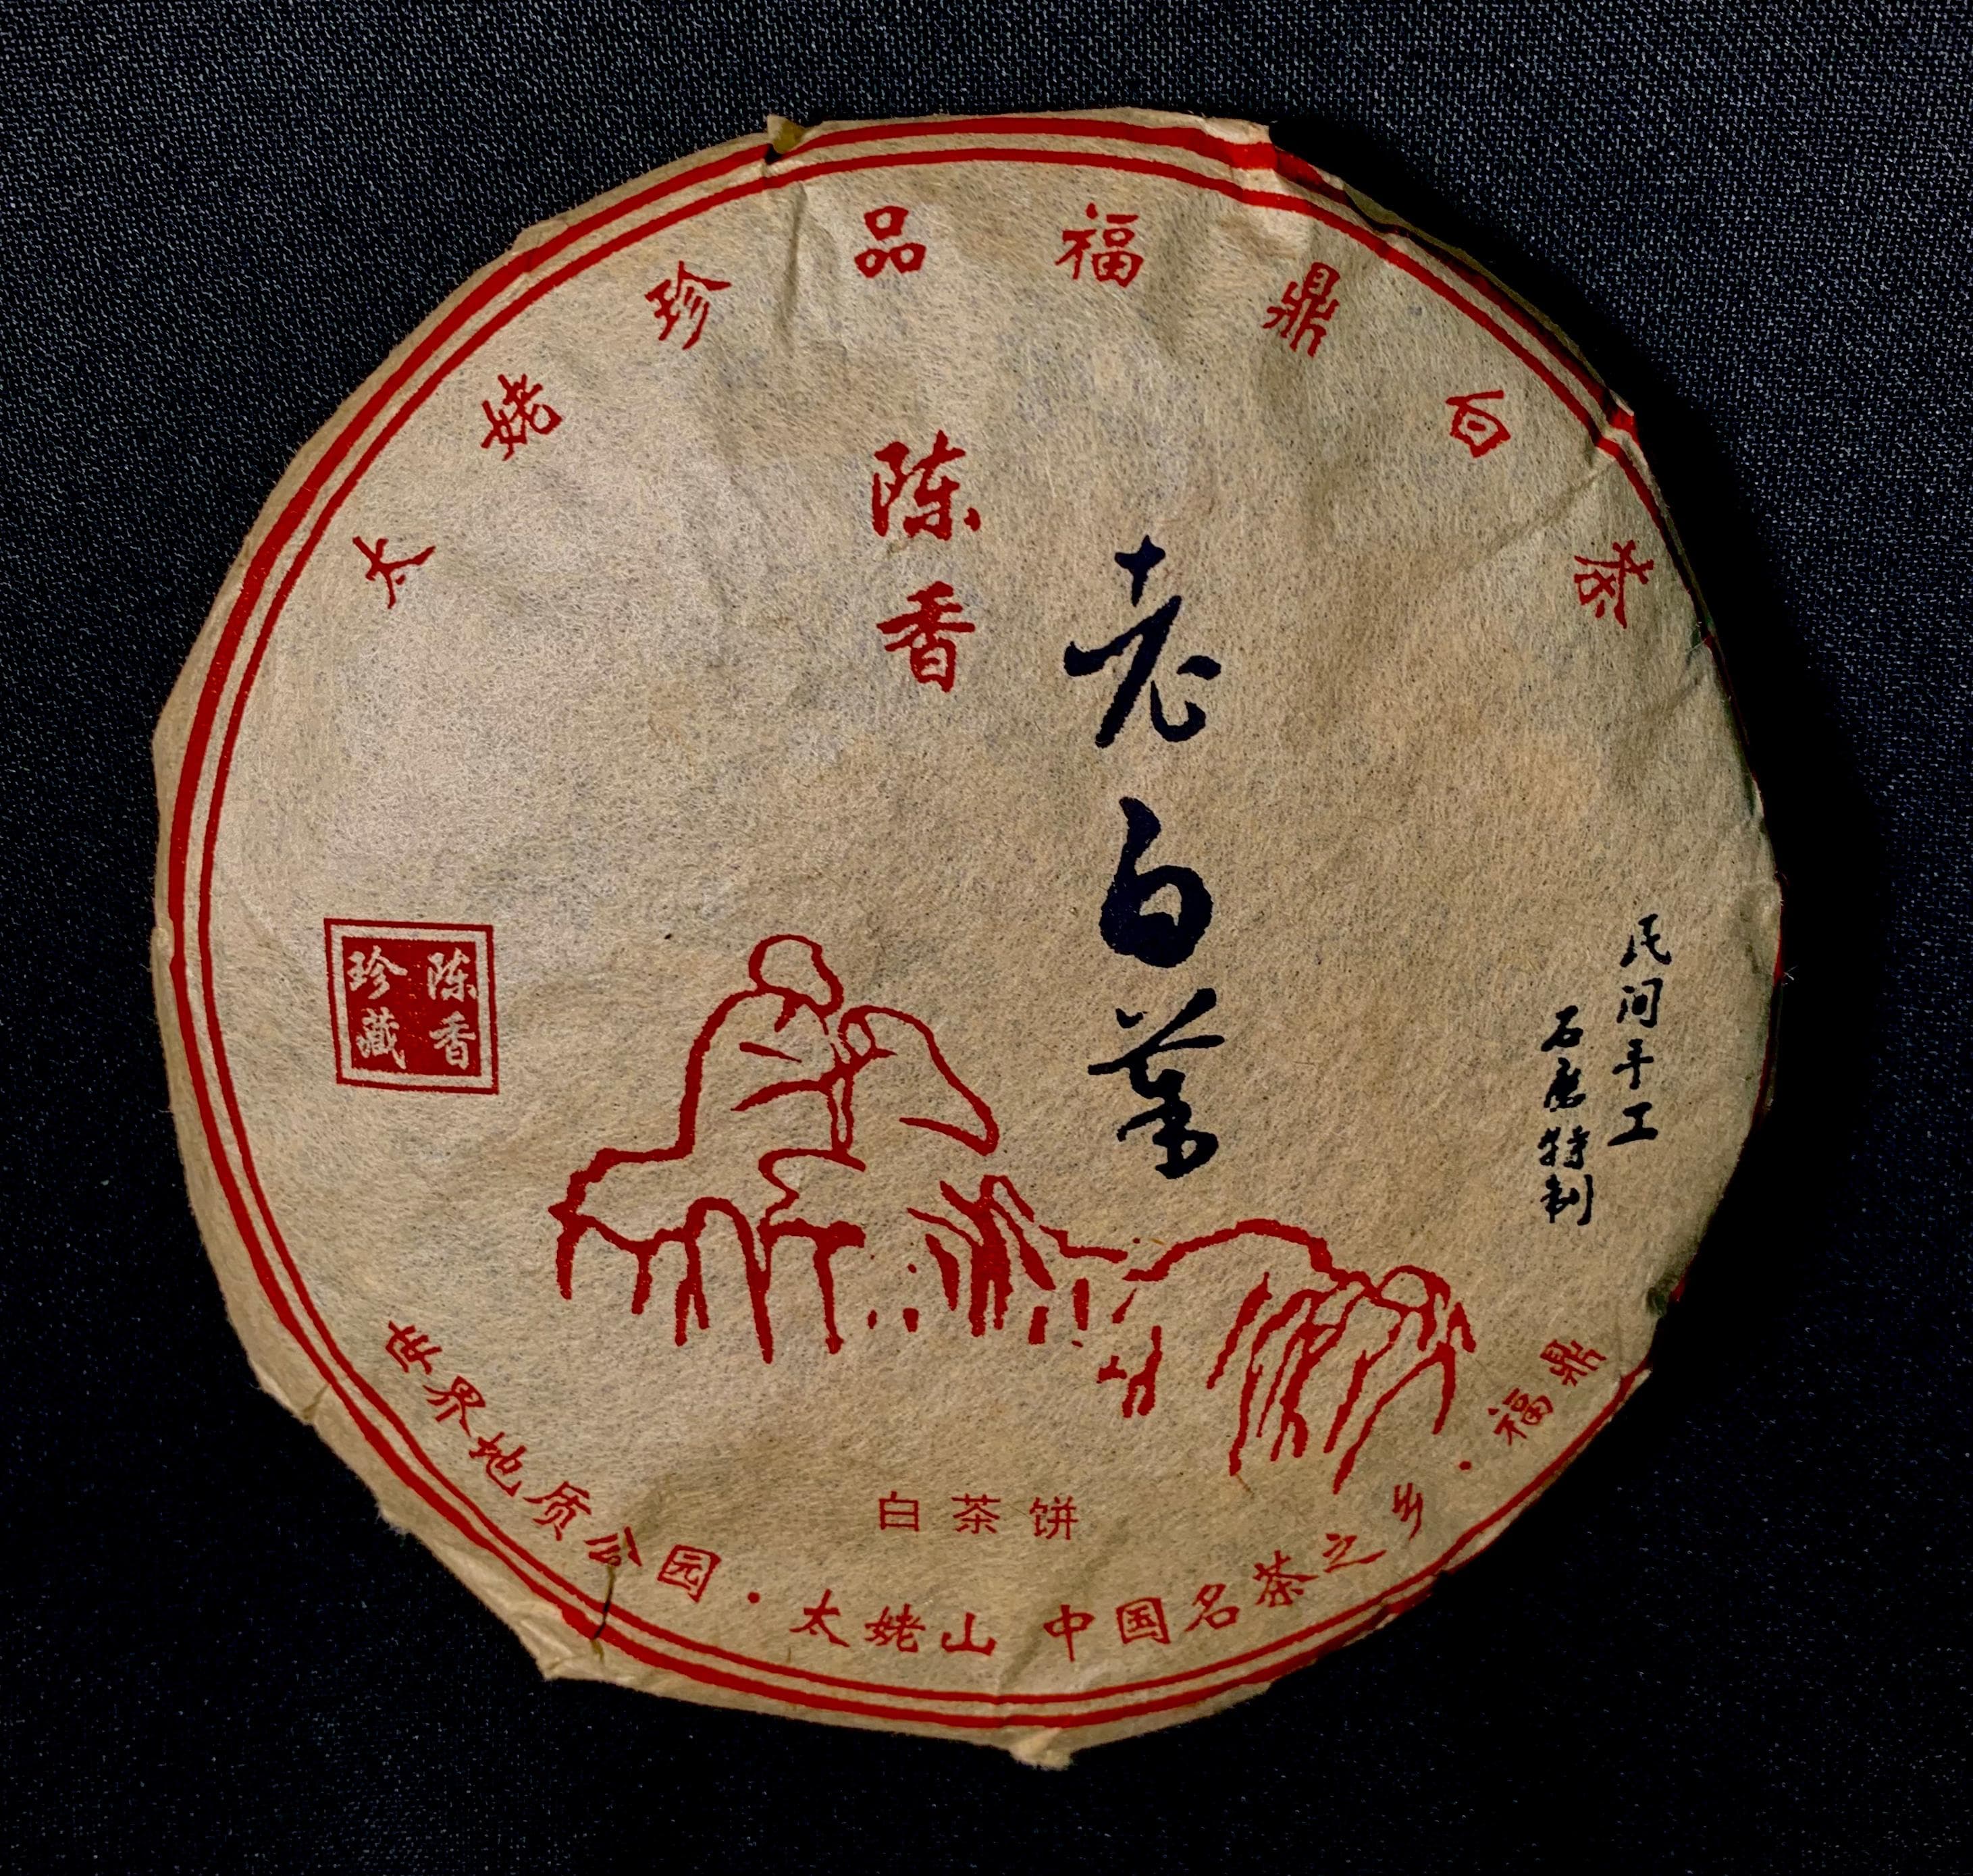 太姥珍品福鼎白茶
陈香
老白茶
民间手工
石磨特制
陈香
珍藏
白茶饼
世界地质公园·太姥山 中国名茶之乡·福鼎